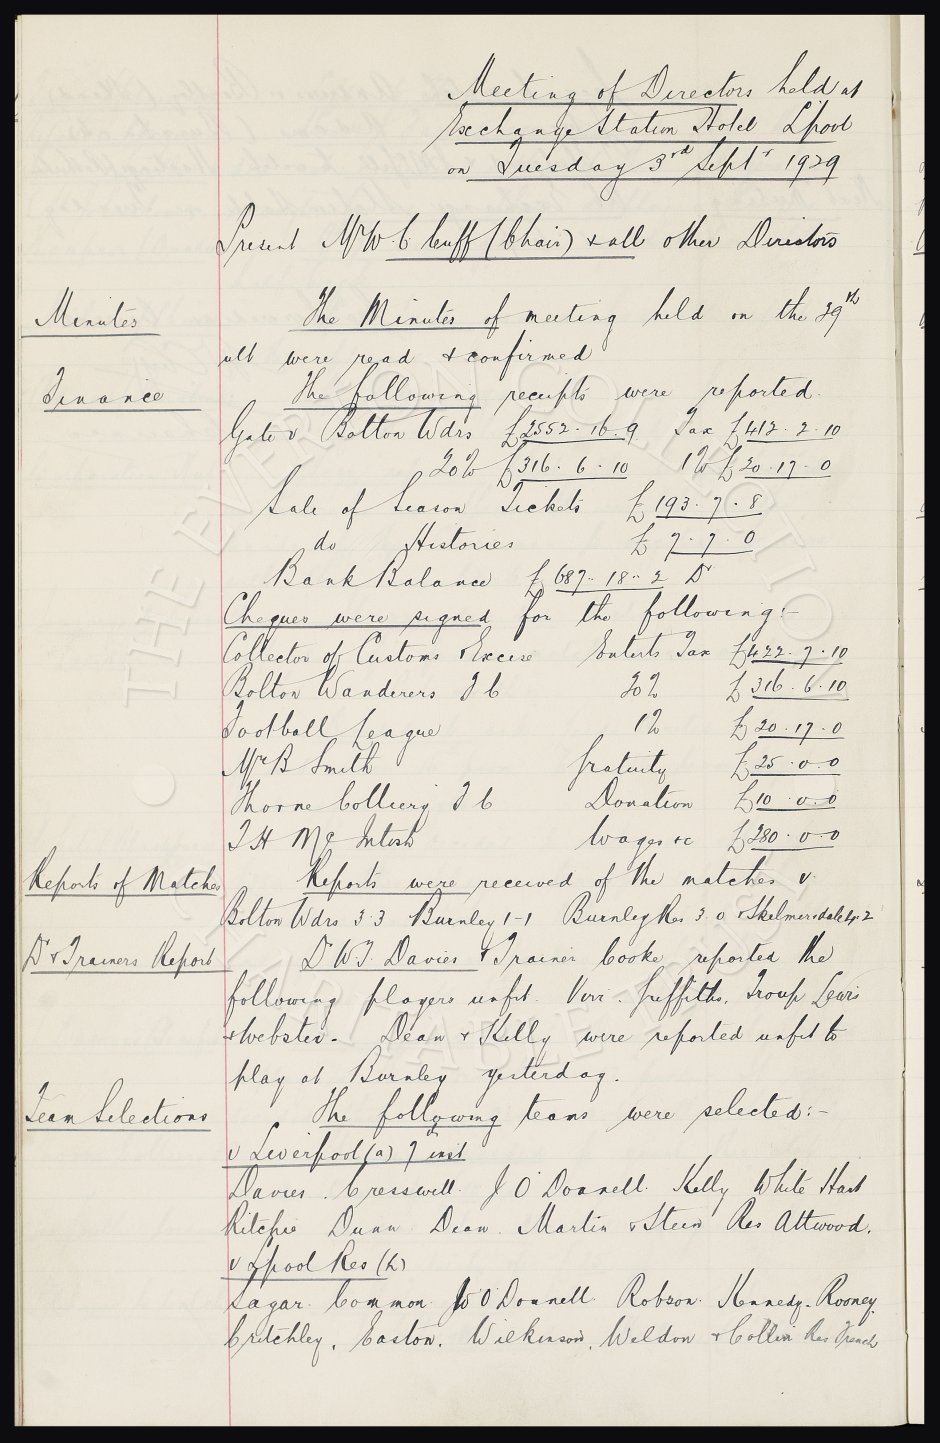 Meeting of Directors held at
Exchange Station Hotel L'pool
on Tuesday 3rd Septr 1929
Present Mr W C Cuff (Chair) & all other Directors
Minutes
The Minutes of meeting held on the 29th
ult were read & confirmed
Finance
The following receipts were reported.
Gate v Bolton Wdrs £2552.16.9 Tax £412.2.10
20% £316.6.10 1% £20.17.0
Sale of Season Tickets £193.7.8
do Histories £7.7.0
Bank Balance £687.18.2 Dr
Cheques were signed for the following:-
Collector of Customs & Excise Enterts Tax £422.7.10
Bolton Wanderers F C 20% £316.6.10
Football League 1% £20.17.0
Mr B Smith Gratuity £25.0.0
Thorne Colliery F C Donation £10.0.0
T H McIntosh Wages &c £280.0.0
Reports of Matches
Reports were received of the matches v.
Bolton Wdrs 3.3 Burnley 1-1 Burnley Res 3.0 & Skelmersdale 4.2
Dr & Trainers Report
Dr W.J. Davies & Trainer Cooke reported the
following players unfit. Virr. Griffiths. Troup Lewis
& Webster. Dean & Kelly were reported unfit to
play at Burnley yesterday.
Team Selections
The following teams were selected:-
v Liverpool (a) 7 inst
Davies. Cresswell. J O'Donnell. Kelly White Hart
Ritchie Dunn Dean. Martin & Stein Res Attwood.
v L'pool Res (h)
Sagar. Common W O'Donnell. Robson. Kennedy. Rooney.
Critchley. Easton. Wilkinson. Weldon & Collin Res French
THE EVERTON COLLECTION
CHARITABLE TRUST